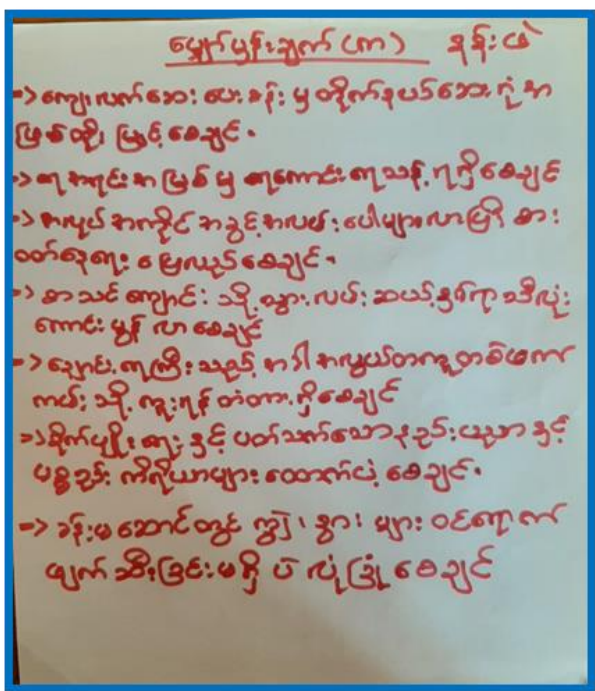 မျှော်မှန်းချက် (က) နန်းဖဲ
-> ကျေးလက်ဆေးပေးခန်းမှ တိုက်နယ်ဆေးရုံအ
ဖြစ်သို့ မြှင့်စေချင်။
-> ရေအရင်းအမြစ်မှ ရေကောင်းရေသန့် ရရှိစေချင်
-> အလုပ်အကိုင်အခွင့်အလမ်းပေါများလာပြီး စား
ဝတ်နေရေး ပြေလည်စေချင်။
-> စာသင်ကျောင်းသို့ သွားလမ်း ဆယ့်နှစ်ရာသီလုံး
ကောင်းမွန်လာစေချင်
-> ချောင်းရေကြီးသည့်အခါ အလွယ်တကူတစ်ဖက်
ကမ်းသို့ ကူးရန် တံတားရှိစေချင်
-> စိုက်ပျိုးရေးနှင့် ပတ်သက်သောနည်းပညာနှင့်
ပစ္စည်း ကိရိယာများ ထောက်ပံ့စေချင်။
-> ခန်းမဆောင်တွင် ကျွဲ၊ နွား များ ဝင်ရောက်
ဖျက်ဆီးခြင်းမရှိပဲ လုံခြုံစေချင်